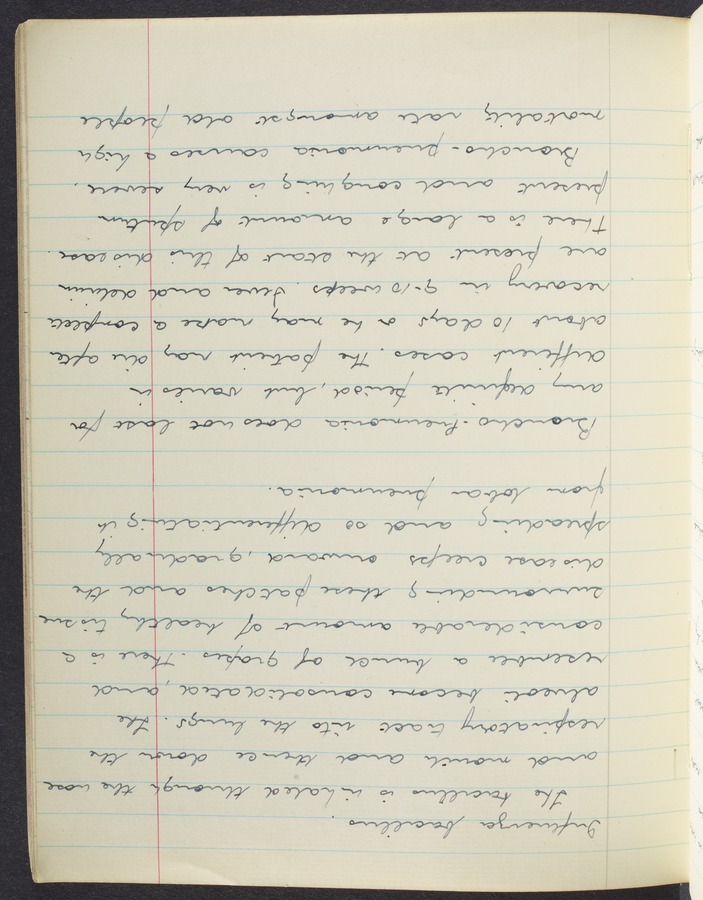 Influenza bacillus.
The bacillus is inhaled through the nose
and mouth and thence down the
respiratory tract into the lungs. The
alveoli become consolidated, and
resemble a bunch of grapes. There is a
considerable amount of healthy tissue
surrounding these patches and the
disease creeps onward, gradually
spreading and so differentiating it
from lobar pneumonia.
Broncho-Pneumonia does not last for
any definite period, but varies in
different cases. The patient may die after
about 10 days or he may make a complete
recovery in 9-10 weeks. Fever and delirium
are present at the start of this disease.
There is a large amount of sputum
present and coughing is very severe.
Broncho-pneumonia causes a high
mortality rate amongst old people